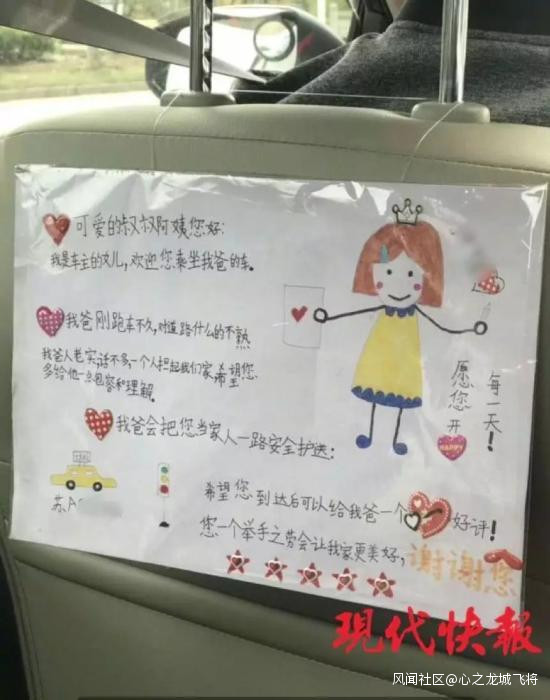 可爱的叔叔阿姨您好:
我是车主的女儿,欢迎您乘坐我爸的车.
我爸刚跑车不久,对道路什么的不熟
我爸人老实话不多,一个人担起我们家希望您
多给他一点包容和理解.
我爸会把您当家人一路安全护送:
愿您开
HAPPY
每一天!
TAXI
苏A
希望您到达后可以给我爸一个好评!
您一个举手之劳会让我家更美好,谢谢您
现代快报
风闻社区@心之龙城飞将